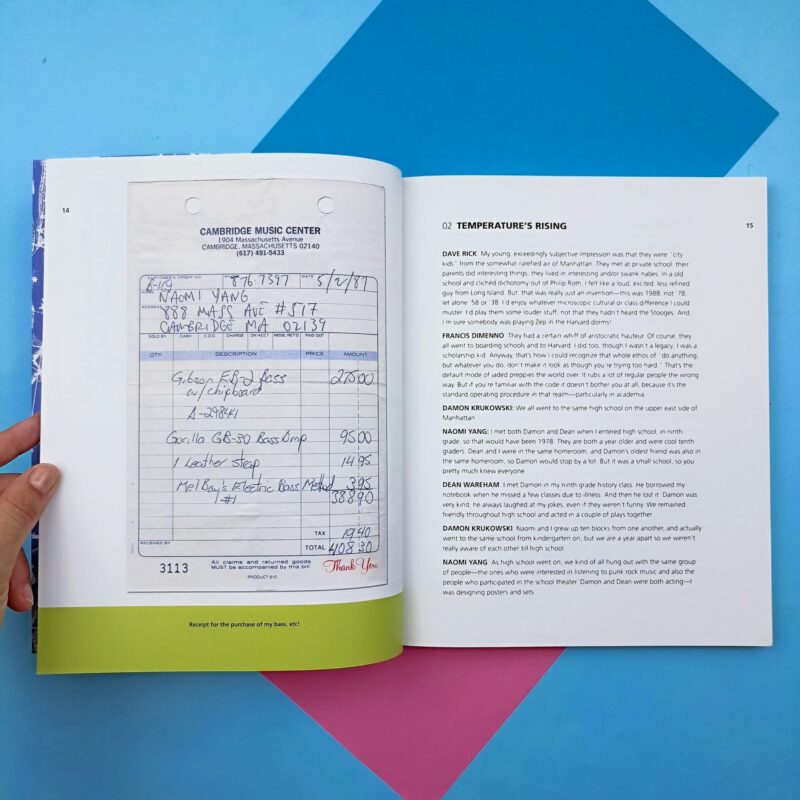 14
CAMBRIDGE MUSIC CENTER
1904 Massachusetts Avenue
CAMBRIDGE, MASSACHUSETTS 02140
(617) 491-5433
CUSTOMER'S ORDER NO. DATE
876-7397 5/2/87
NAOMI YANG
ADDRESS
888 MASS AVE #517
CAMBRIDGE MA 02139
SOLD BY CASH C.O.D. CHARGE ON ACCT. MDSE. RETD. PAID OUT
QTY. DESCRIPTION PRICE AMOUNT
Gibson EB-2 Bass 275.00
w/ chipboard
A-29841
Gorilla GB-30 Bass Amp 95.00
1 Leather strap 14.95
Mel Bay's Electric Bass Method 3.95
#1 388.90
TAX 19.40
RECEIVED BY
TOTAL 408.30
3113
All claims and returned goods
MUST be accompanied by this bill.
Thank You
PRODUCT 610
Receipt for the purchase of my bass, etc!
02 TEMPERATURE'S RISING
15
DAVE RICK My young, exceedingly subjective impression was that they were "city
kids" from the somewhat rarefied air of Manhattan. They met at private school, their
parents did interesting things, they lived in interesting and/or swank habes. In a old
school and clichéd dichotomy out of Philip Roth, I felt like a loud, excited, less refined
guy from Long Island. But, that was really just an invention—this was 1988, not '78,
let alone '58 or '38. I'd enjoy whatever microscopic cultural or class difference I could
muster. I'd play them some louder stuff, not that they hadn't heard the Stooges. And,
I'm sure somebody was playing Zep in the Harvard dorms!
FRANCIS DIMENNO They had a certain whiff of aristocratic hauteur. Of course, they
all went to boarding schools and to Harvard. I did too, though I wasn't a legacy. I was a
scholarship kid. Anyway, that's how I could recognize that whole ethos of "do anything,
but whatever you do, don't make it look as though you're trying too hard." That's the
default mode of jaded preppies the world over. It rubs a lot of regular people the wrong
way. But if you're familiar with the code it doesn't bother you at all, because it's the
standard operating procedure in that realm—particularly in academia.
DAMON KRUKOWSKI: We all went to the same high school on the upper east side of
Manhattan.
NAOMI YANG: I met both Damon and Dean when I entered high school, in ninth
grade, so that would have been 1978. They are both a year older and were cool tenth
graders. Dean and I were in the same homeroom, and Damon's oldest friend was also in
the same homeroom, so Damon would stop by a lot. But it was a small school, so you
pretty much knew everyone.
DEAN WAREHAM I met Damon in my ninth grade history class. He borrowed my
notebook when he missed a few classes due to illness. And then he lost it. Damon was
very kind, he always laughed at my jokes, even if they weren't funny. We remained
friendly throughout high school and acted in a couple of plays together.
DAMON KRUKOWSKI Naomi and I grew up ten blocks from one another, and actually
went to the same school from kindergarten on, but we are a year apart so we weren't
really aware of each other till high school.
NAOMI YANG As high school went on, we kind of all hung out with the same group
of people—the ones who were interested in listening to punk rock music and also the
people who participated in the school theater. Damon and Dean were both acting—I
was designing posters and sets.